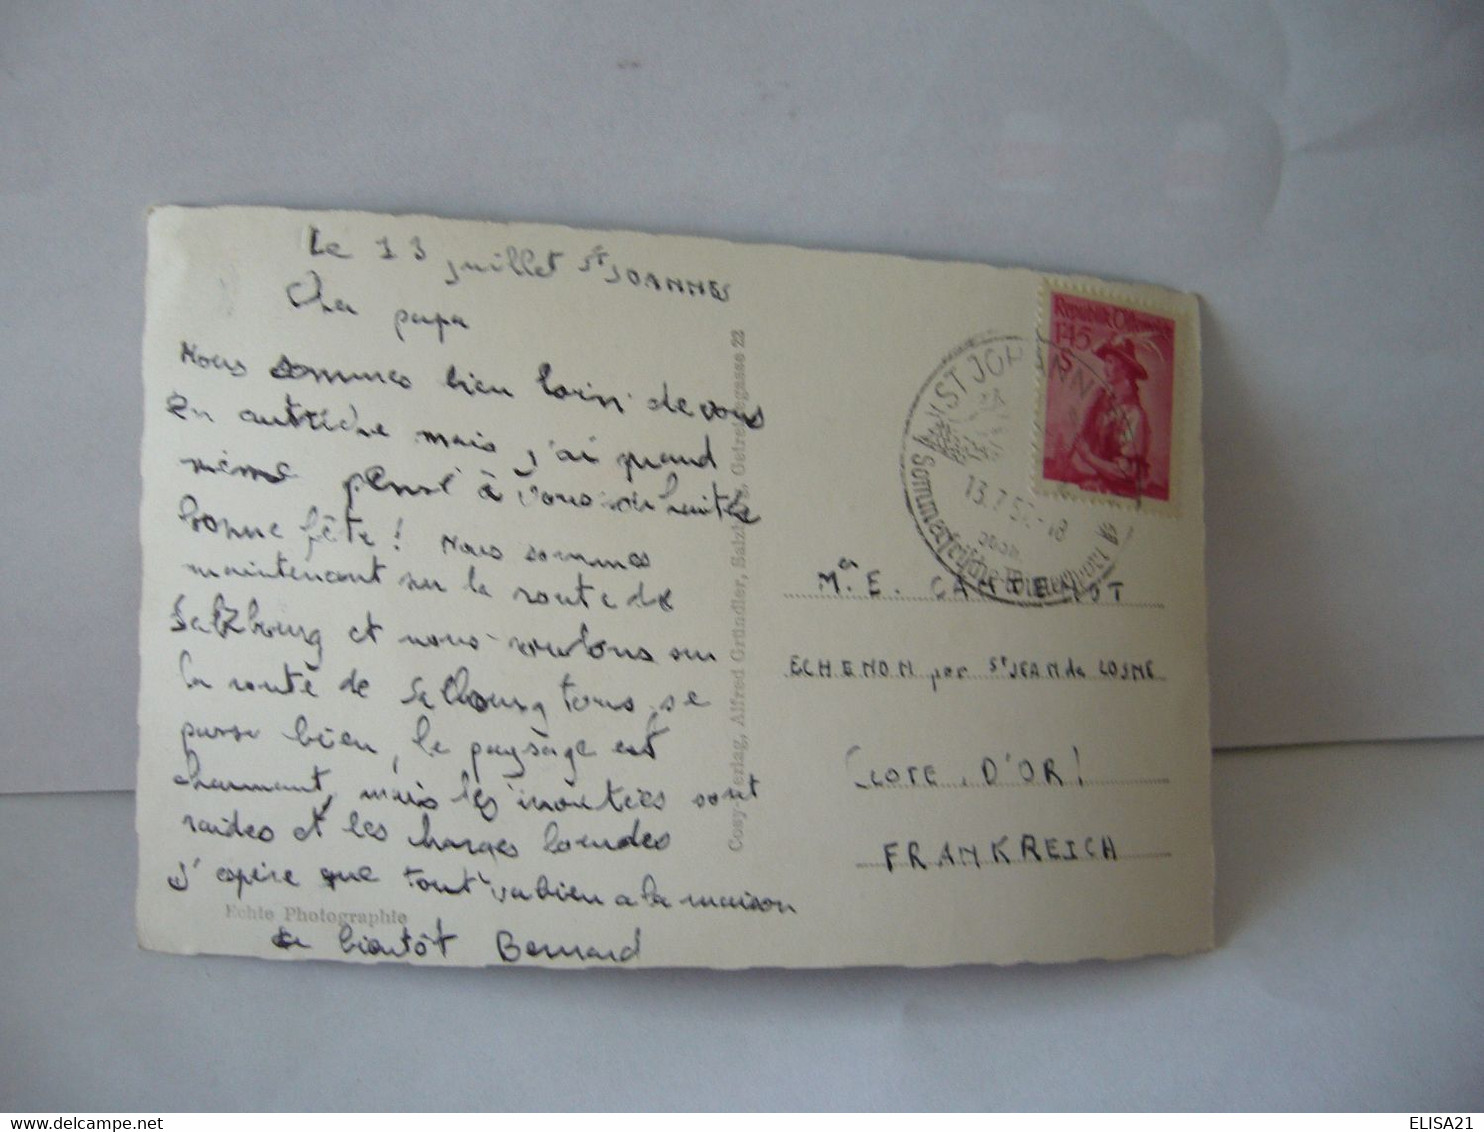 www.delcampe.net
Le 13 juillet St JOANNES
Cher papa
Nous sommes bien loin de vous
en autriche mais j'ai quand
même pensé à vous souhaiter
bonne fête ! Nous sommes
maintenant sur la route de
Salzbourg et nous roulons sur
la route de Salbourg tous se
passe bien, le paysage est
charmant, mais les montées sont
raides et les charges lourdes
J'espère que tout va bien a la maison
a bientôt Bernard
Echte Photographie
Cosy-Verlag, Alfred Gründler, Salzburg, Getreidegasse 22
Republik Österreich
1S45
ST JOHANN
13.7.5 -18
Sommerfrische
Mr. E. CAMUENOT
ECHENON par St JEAN de LOSNE
(COTE D'OR)
FRANKREICH
ELISA21